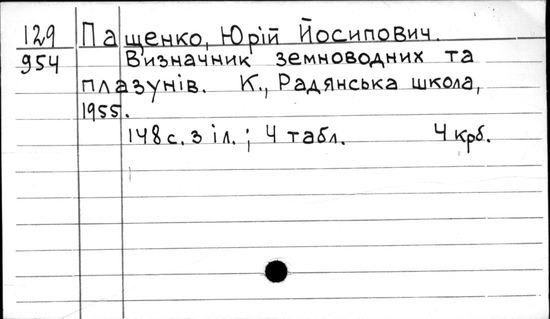 129 Пащенко, Юрій Йосипович.
954 Визначник земноводних та
плазунів. К., Радянська школа,
1955.
148 с. з іл.; 4 табл. 4 крб.